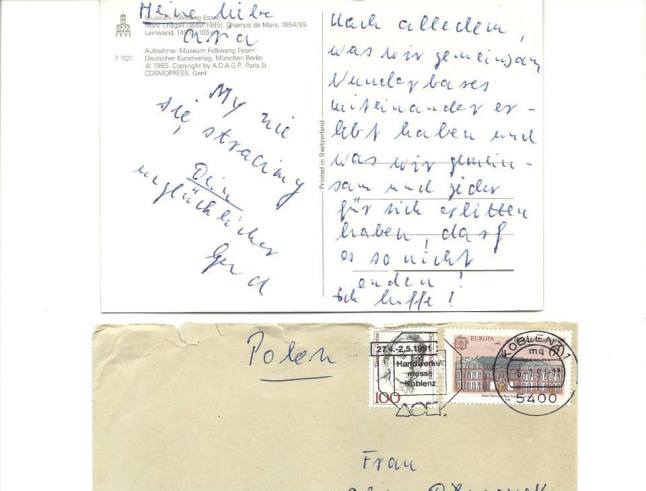 Meine liebe
Museum Folkwang Essen
Marc Chagall (1889-1985), Champs de Mars, 1954/55
Leinwand,
Aufnahme: Museum Folkwang Essen
Deutscher Kunstverlag, München Berlin
© 1985. Copyright by A.D.A.G.P. Paris &
COSMOPRESS, Genf
F 1121
My nie
się stracimy
Dein
unglücklicher
Gerd
Printed in Switzerland
Nach alledem,
was wir gemeinsam
Wunderbares
miteinander er-
lebt haben und
was wir gemein-
sam und jeder
für sich erlitten
haben, darf
es so nicht
enden!
Ich hoffe!
Polen
27.4.-2.5.1991
Handwerks-
messe
Koblenz
100
EUROPA
KOBLENZ 1
mq
5400
Frau